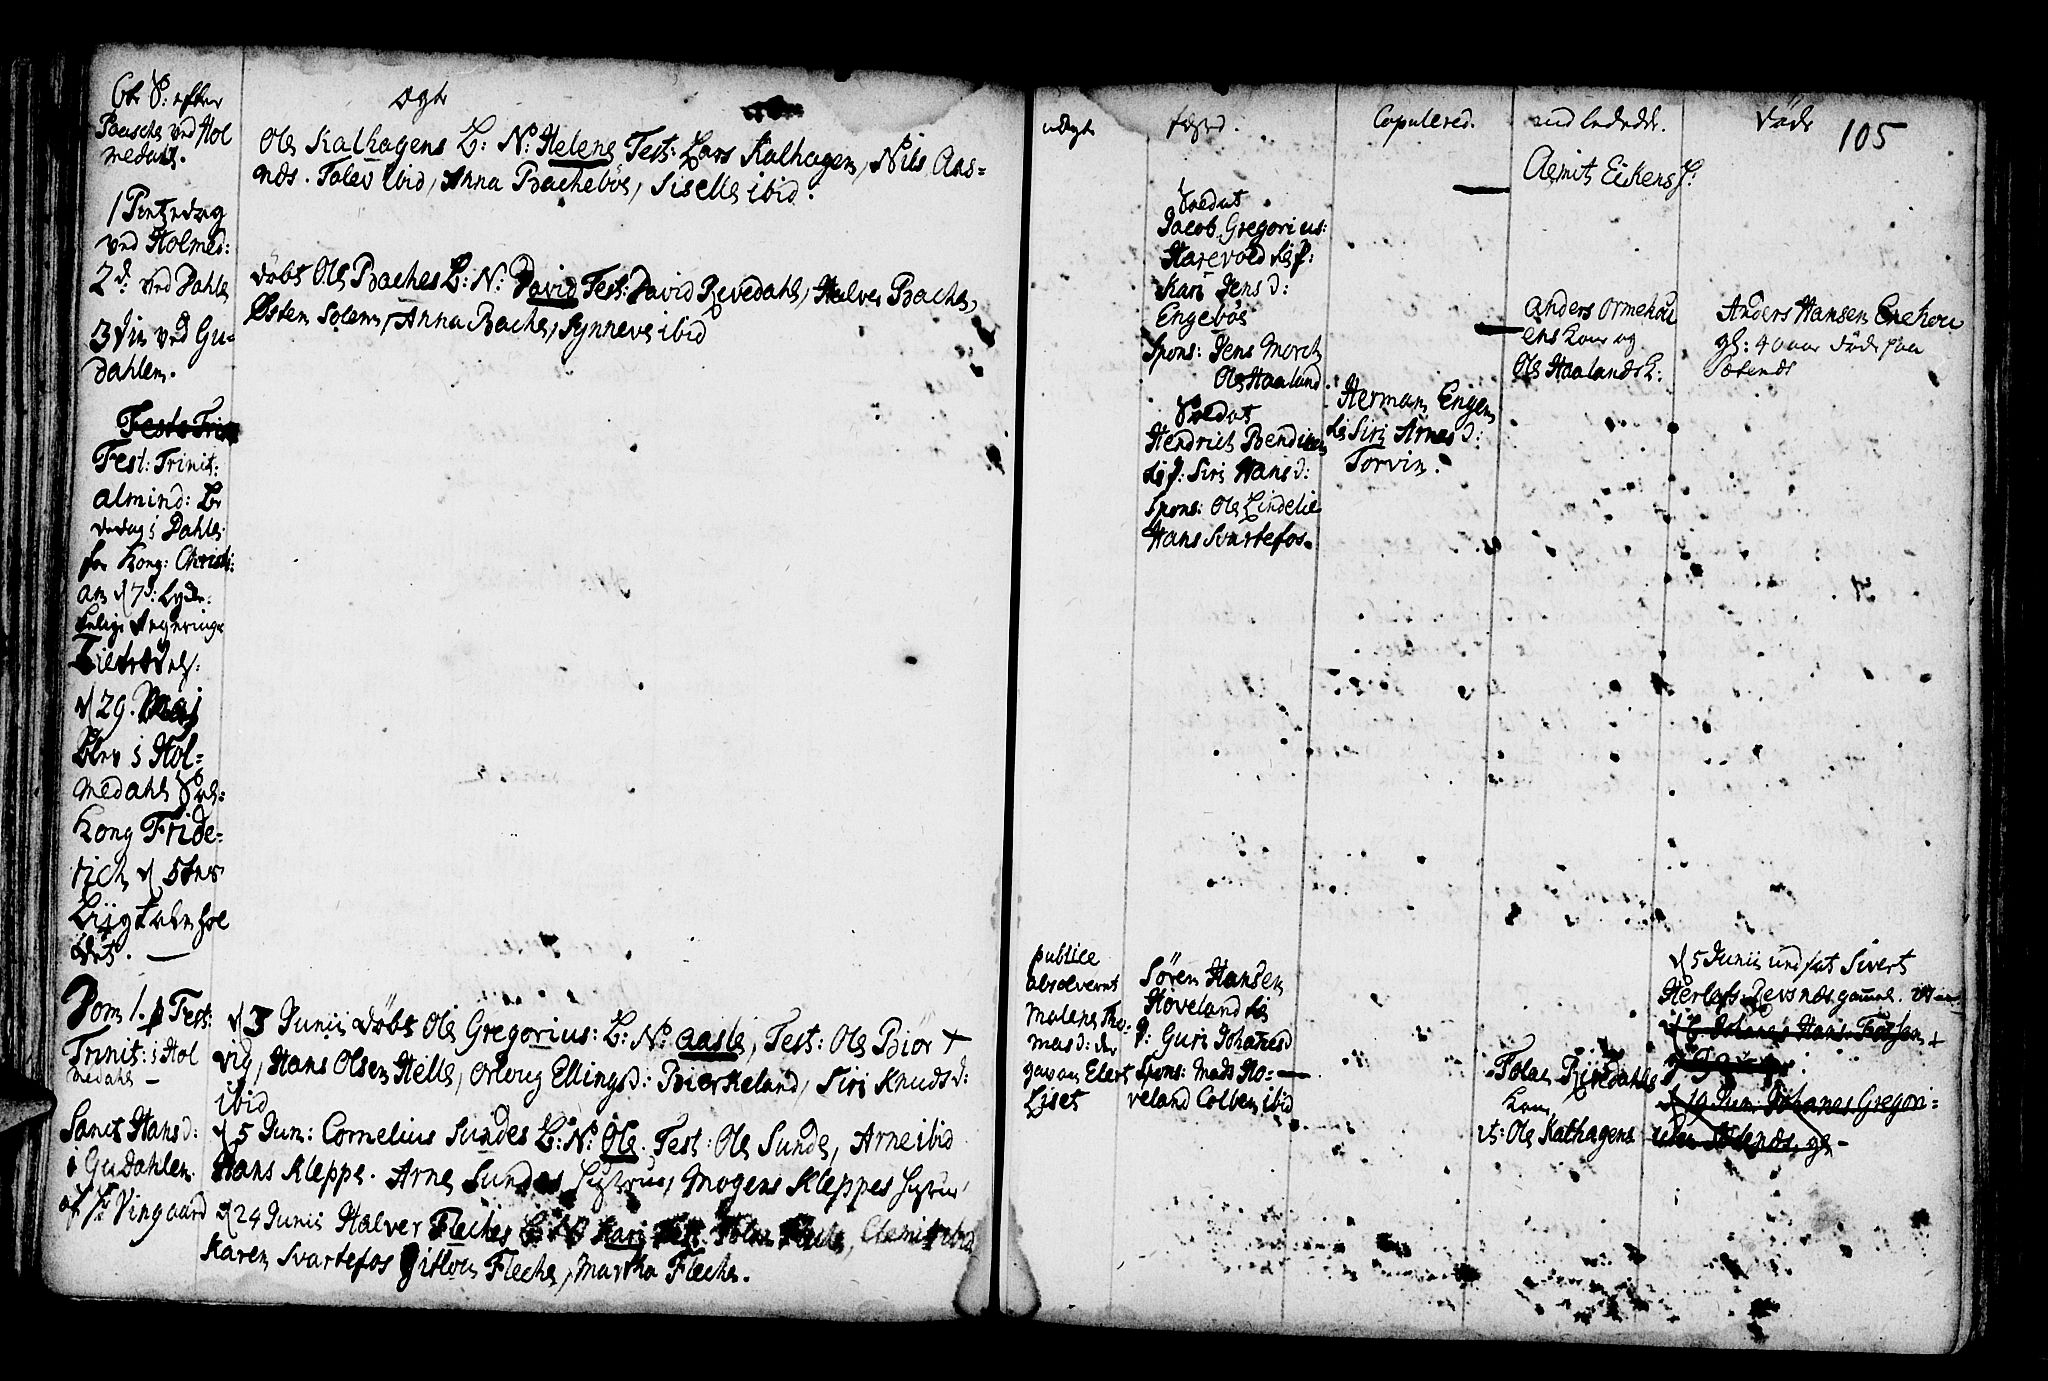 6te S: efter
Paasche ved Hol
medahl.
1 Pintzedag
ved Holmed:
2d: ved Dahle
3die ved Gu=
dahlen.
Festo Trin
Fest: Trinit:
almind: Be
dedag i Dahle
for Kong: Christi:
an d 7d: Lyck:
salige Regierings
Tiltrædels:
d 29. Maj
blev i Hol=
medahl
Kong Fride=
rich d 5tes
Liigtale hol
det.
Dom 1. p Fest:
Trinit: i Hol
medahl
Sanct Hans d:
i Gudahlen
af Hr Vingaard
ægte
Ole Kalhagens B: N: Helene Test: Lars Kalhagen, Nils Aas=
nds. Tolev ibid, Anna Bachebøe, Siselle ibid.
døbt Ole Baches B: N: David Test: David Revedahl, Halver Bache,
Østen Solem, Anna Bache, Synneve ibid
d 3 Junii døbt Ole Gregorius: B: N: Aasle, Test: Ole Biør
vig, Hans Olsen Helle, Orloug Ellingsd: Bierkeland, Siri Knudsd:
ibid
d 5 Jun: Cornelius Sundes B: N: Ole. Test: Ole Sunde, Arne ibid
Hans Kleppe. Arne Sundes Hustrue, Mogens Kleppes Hustrue
d 24 Junii Halver Fleches B: N: Kari Test: Fleche, Clemit ibid
Karen Svartefos Gitlou Fleche, Martha Fleche.
uægte
publice
absolveret
Malene Tho=
masd: der
gav an Elert
Liset
fæsted.
Soldat
Jacob Gregorius:
Harevold & p:
Kari Jensd:
Engebøe
Spons: Jens Morch
Ole Haaland
Soldat
Hendrich Bendixen
& p: Siri Hansd:
Spons: Ole Lindelie
Hans Svartefos.
Søren Hansen
Hoveland &
p: Guri Johansd
Spons: Mads Ho=
veland Colben ibid
Copulered.
Herman Engen
& Siri Arnesd:
Torvin.
indledede.
Clemit Eikens H:
Anders Ormehou
ens Kone og
Ole Haalands K:
Tolai Revedahls
Kone
it: Ole Kalhagens
døde
105
Anders Hansen Enehou
gl: 40 aar døde paa
d 5 Junii indsat Sivert
Herlofs. gammel.
d 6 Johanes Hans: Fossen
d 19 Jun: Johanes Gregori=